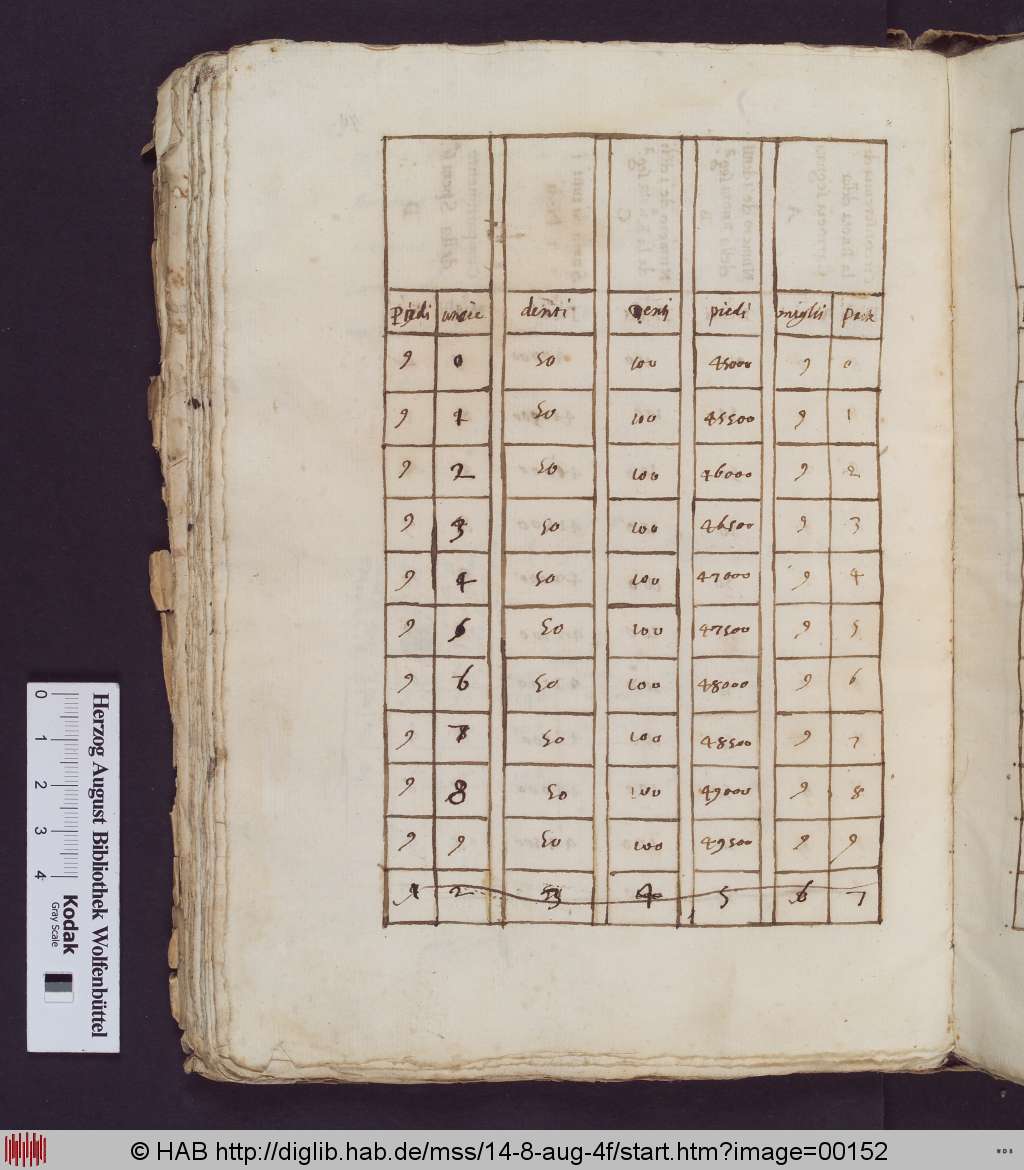 Piedi oncie denti denti piedi miglii
9 0 50 100 45000 9 0
9 1 50 100 45500 9 1
9 2 50 100 46000 9 2
9 3 50 100 46500 9 3
9 4 50 100 47000 9 4
9 5 50 100 47500 9 5
9 6 50 100 48000 9 6
9 7 50 100 48500 9 7
9 8 50 100 49000 9 8
9 9 50 100 49500 9 9
1 2 3 4 5 6 7
0 1 2 3 4
Herzog August Bibliothek Wolfenbüttel
Kodak
Gray Scale
© HAB http://diglib.hab.de/mss/14-8-aug-4f/start.htm?image=00152